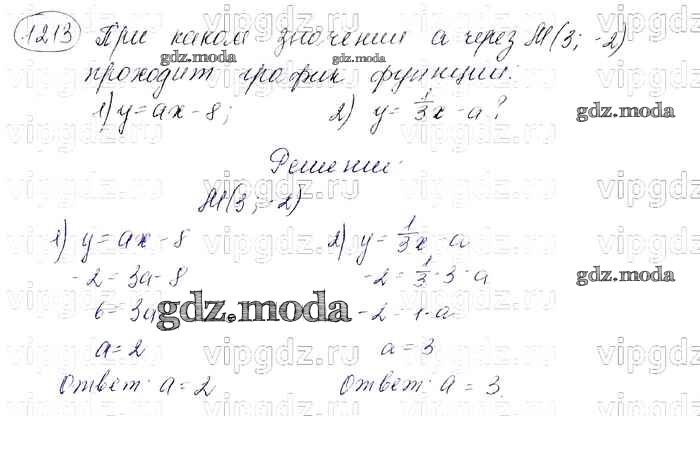 1213 При каком значении а через М(3; -2)
проходит график функции:
1) y = ax - 8; 2) y = 1/3 x - a?
Решение:
М(3; -2)
1) y = ax - 8 2) y = 1/3 x - a
-2 = 3a - 8 -2 = 1/3 · 3 - a
6 = 3a -2 = 1 - a
a = 2 a = 3
Ответ: a = 2 Ответ: a = 3.
gdz.moda
gdz.moda
gdz.moda
gdz.moda
gdz.moda
vipgdz.ru